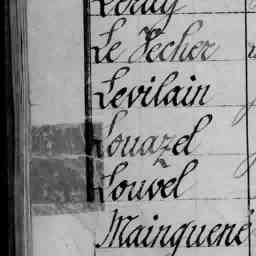 Leray
Le Pecher
Levilain
Louazel
Louvel
Mainguené